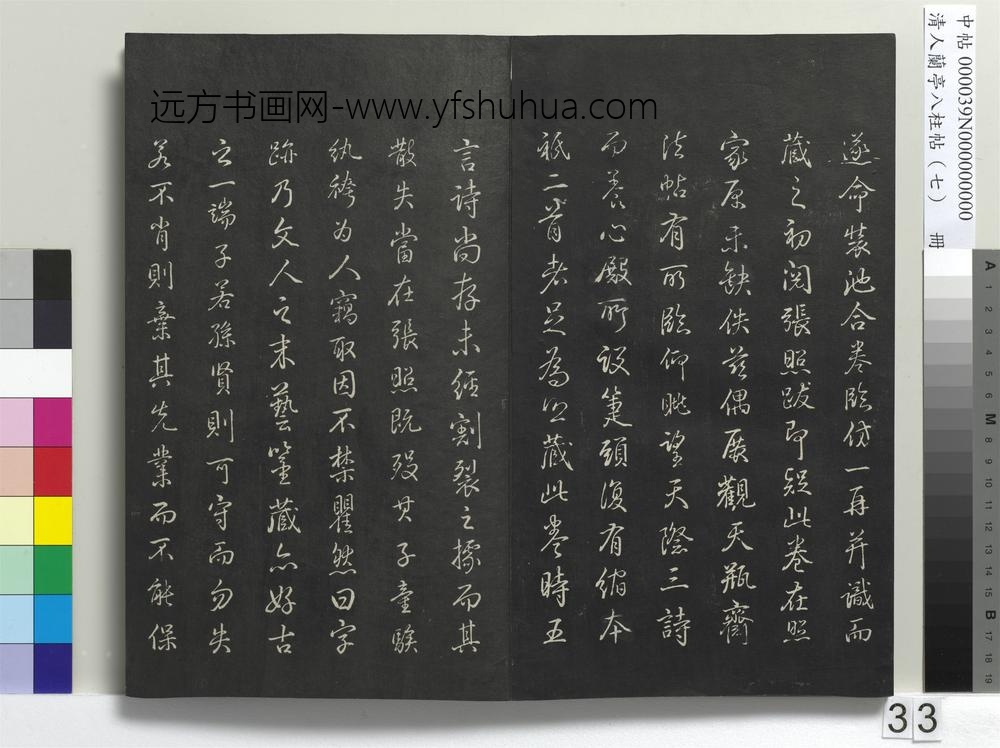 遂命裝池合卷臨仿一再并識而
藏之初閱張照跋即疑此卷在照
家原未缺佚茲偶展觀天瓶齋
法帖有所臨仰眺望天際三詩
而養心殿所設筆頭復有縮本
祇二首者足為得藏此卷時五
言詩尚存未經割裂之據而其
散失當在張照既歿其子童騃
紈袴為人竊取因不禁瞿然曰字
跡乃文人之末藝鑒藏亦好古
之一端子若孫賢則可守而勿失
若不肖則棄其先業而不能保
远方书画网-www.yfshuhua.com
中帖000039N000000000
清人蘭亭八柱帖(七) 冊
A 2 3 4 5 6 M 8 9 10 11 12 13 14 15 B 17 18 19
33